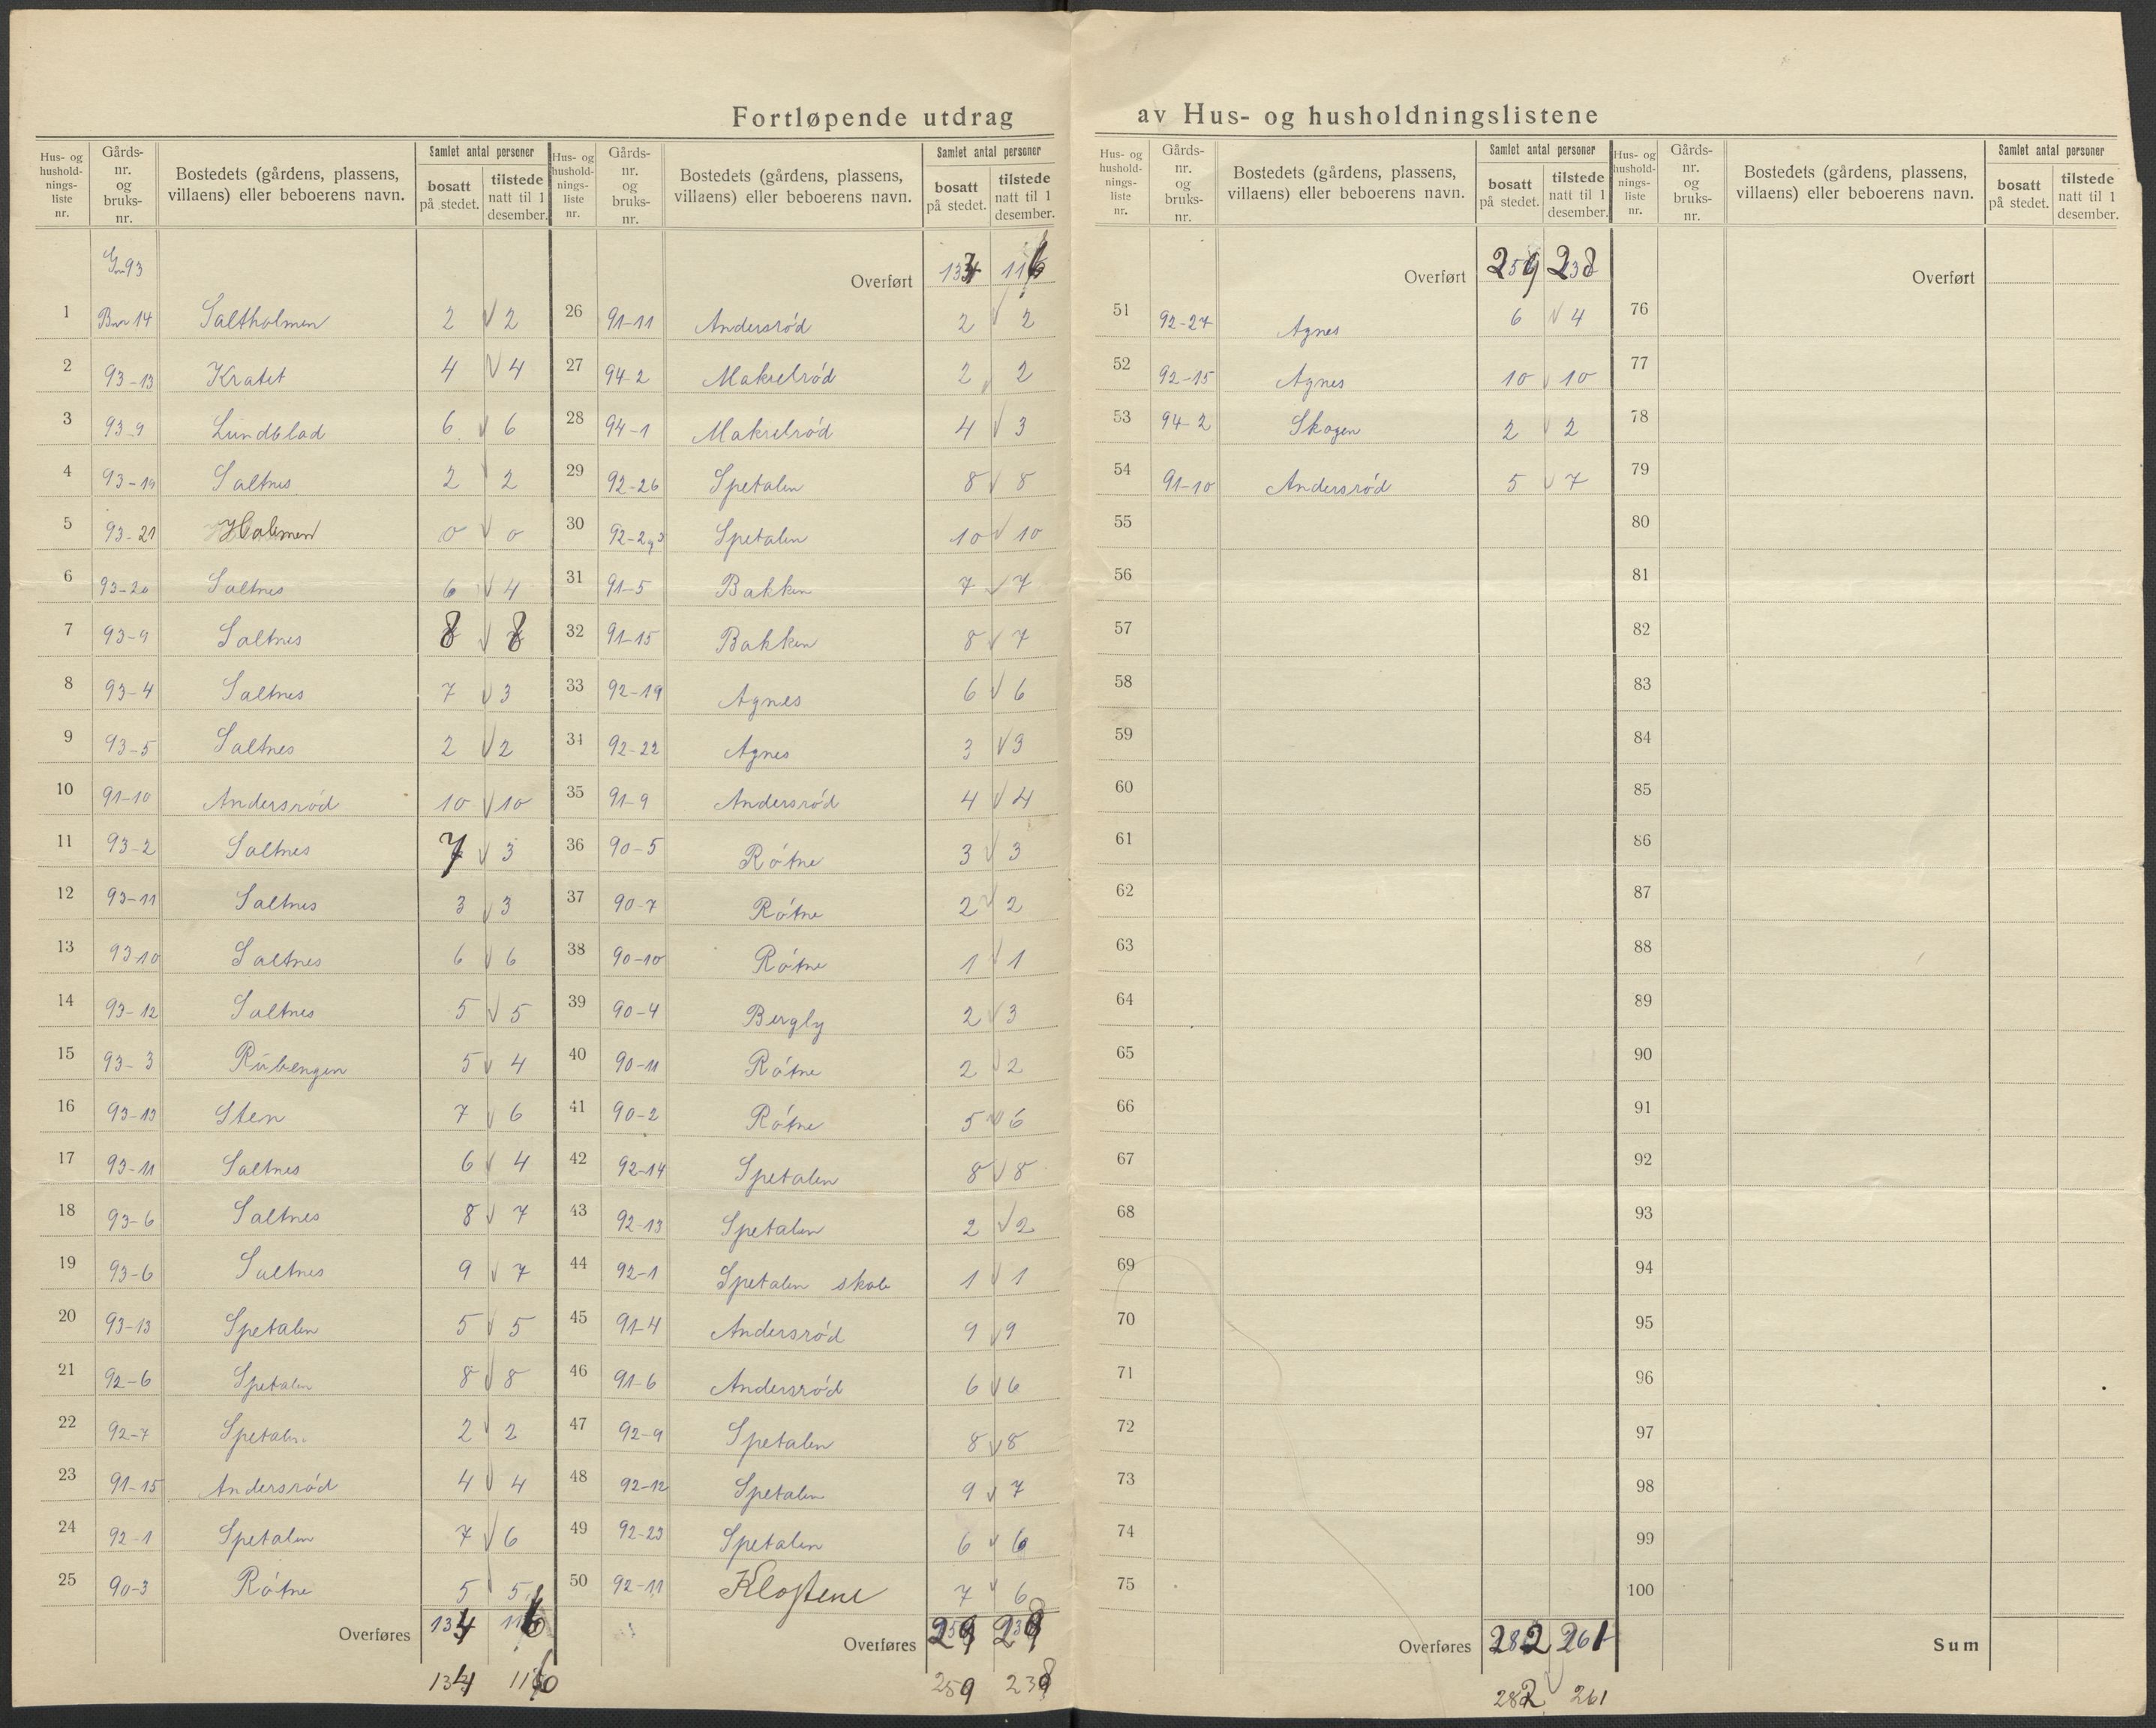 Fortløpende utdrag av Hus- og husholdningslistene
Hus- og husholdnings- liste nr. | Gårds- nr. og bruks- nr. | Bostedets (gårdens, plassens, villaens) eller beboerens navn. | Samlet antal personer | bosatt på stedet. | tilstede natt til 1 desember.
Gnr 93
1 Bnr 14 Saltholmen 2 2
2 93-13 Kratet 4 4
3 93-9 Lundblad 6 6
4 93-19 Saltnes 2 2
5 93-21 Holmen 0 0
6 93-20 Saltnes 6 4
7 93-9 Saltnes 8 8
8 93-4 Saltnes 7 3
9 93-5 Saltnes 2 2
10 91-10 Andersrød 10 10
11 93-2 Saltnes 7 3
12 93-11 Saltnes 3 3
13 93-10 Saltnes 6 6
14 93-12 Saltnes 5 5
15 93-3 Rubengen 5 4
16 93-13 Sten 7 6
17 93-11 Saltnes 6 4
18 93-6 Saltnes 8 7
19 93-6 Saltnes 9 7
20 93-13 Spetalen 5 5
21 92-6 Spetalen 8 8
22 92-7 Spetalen 2 2
23 91-15 Andersrød 4 4
24 92-1 Spetalen 7 6
25 90-3 Røtne 5 5
Overføres 134 116
134 116
Hus- og husholdnings- liste nr. | Gårds- nr. og bruks- nr. | Bostedets (gårdens, plassens, villaens) eller beboerens navn. | Samlet antal personer | bosatt på stedet. | tilstede natt til 1 desember.
Overført 134 116
26 91-11 Andersrød 2 2
27 94-2 Makrelrød 2 2
28 94-1 Makrelrød 4 3
29 92-26 Spetalen 8 8
30 92-2,3 Spetalen 10 10
31 91-5 Bakken 7 7
32 91-15 Bakken 8 7
33 92-19 Agnes 6 6
34 92-22 Agnes 3 3
35 91-9 Andersrød 4 4
36 90-5 Røtne 3 3
37 90-7 Røtne 2 2
38 90-10 Røtne 1 1
39 90-4 Bergly 2 3
40 90-11 Røtne 2 2
41 90-2 Røtne 5 6
42 92-14 Spetalen 8 8
43 92-13 Spetalen 2 2
44 92-1 Spetalen skole 1 1
45 91-4 Andersrød 9 9
46 91-6 Andersrød 6 6
47 92-9 Spetalen 8 8
48 92-12 Spetalen 9 7
49 92-23 Spetalen 6 6
50 92-11 Klostene 7 6
Overføres 259 238
259 238
Hus- og hushold- nings- liste nr. | Gårds- nr. og bruks- nr. | Bostedets (gårdens, plassens, villaens) eller beboerens navn. | Samlet antal personer | bosatt på stedet. | tilstede natt til 1 desember.
Overført 259 238
51 92-27 Agnes 6 4
52 92-15 Agnes 10 10
53 94-2 Skogen 2 2
54 91-10 Andersrød 5 7
55
56
57
58
59
60
61
62
63
64
65
66
67
68
69
70
71
72
73
74
75
Overføres 282 261
282 261
Hus- og hushold- nings- liste nr. | Gårds- nr. og bruks- nr. | Bostedets (gårdens, plassens, villaens) eller beboerens navn. | Samlet antal personer | bosatt på stedet. | tilstede natt til 1 desember.
Overført
76
77
78
79
80
81
82
83
84
85
86
87
88
89
90
91
92
93
94
95
96
97
98
99
100
Sum